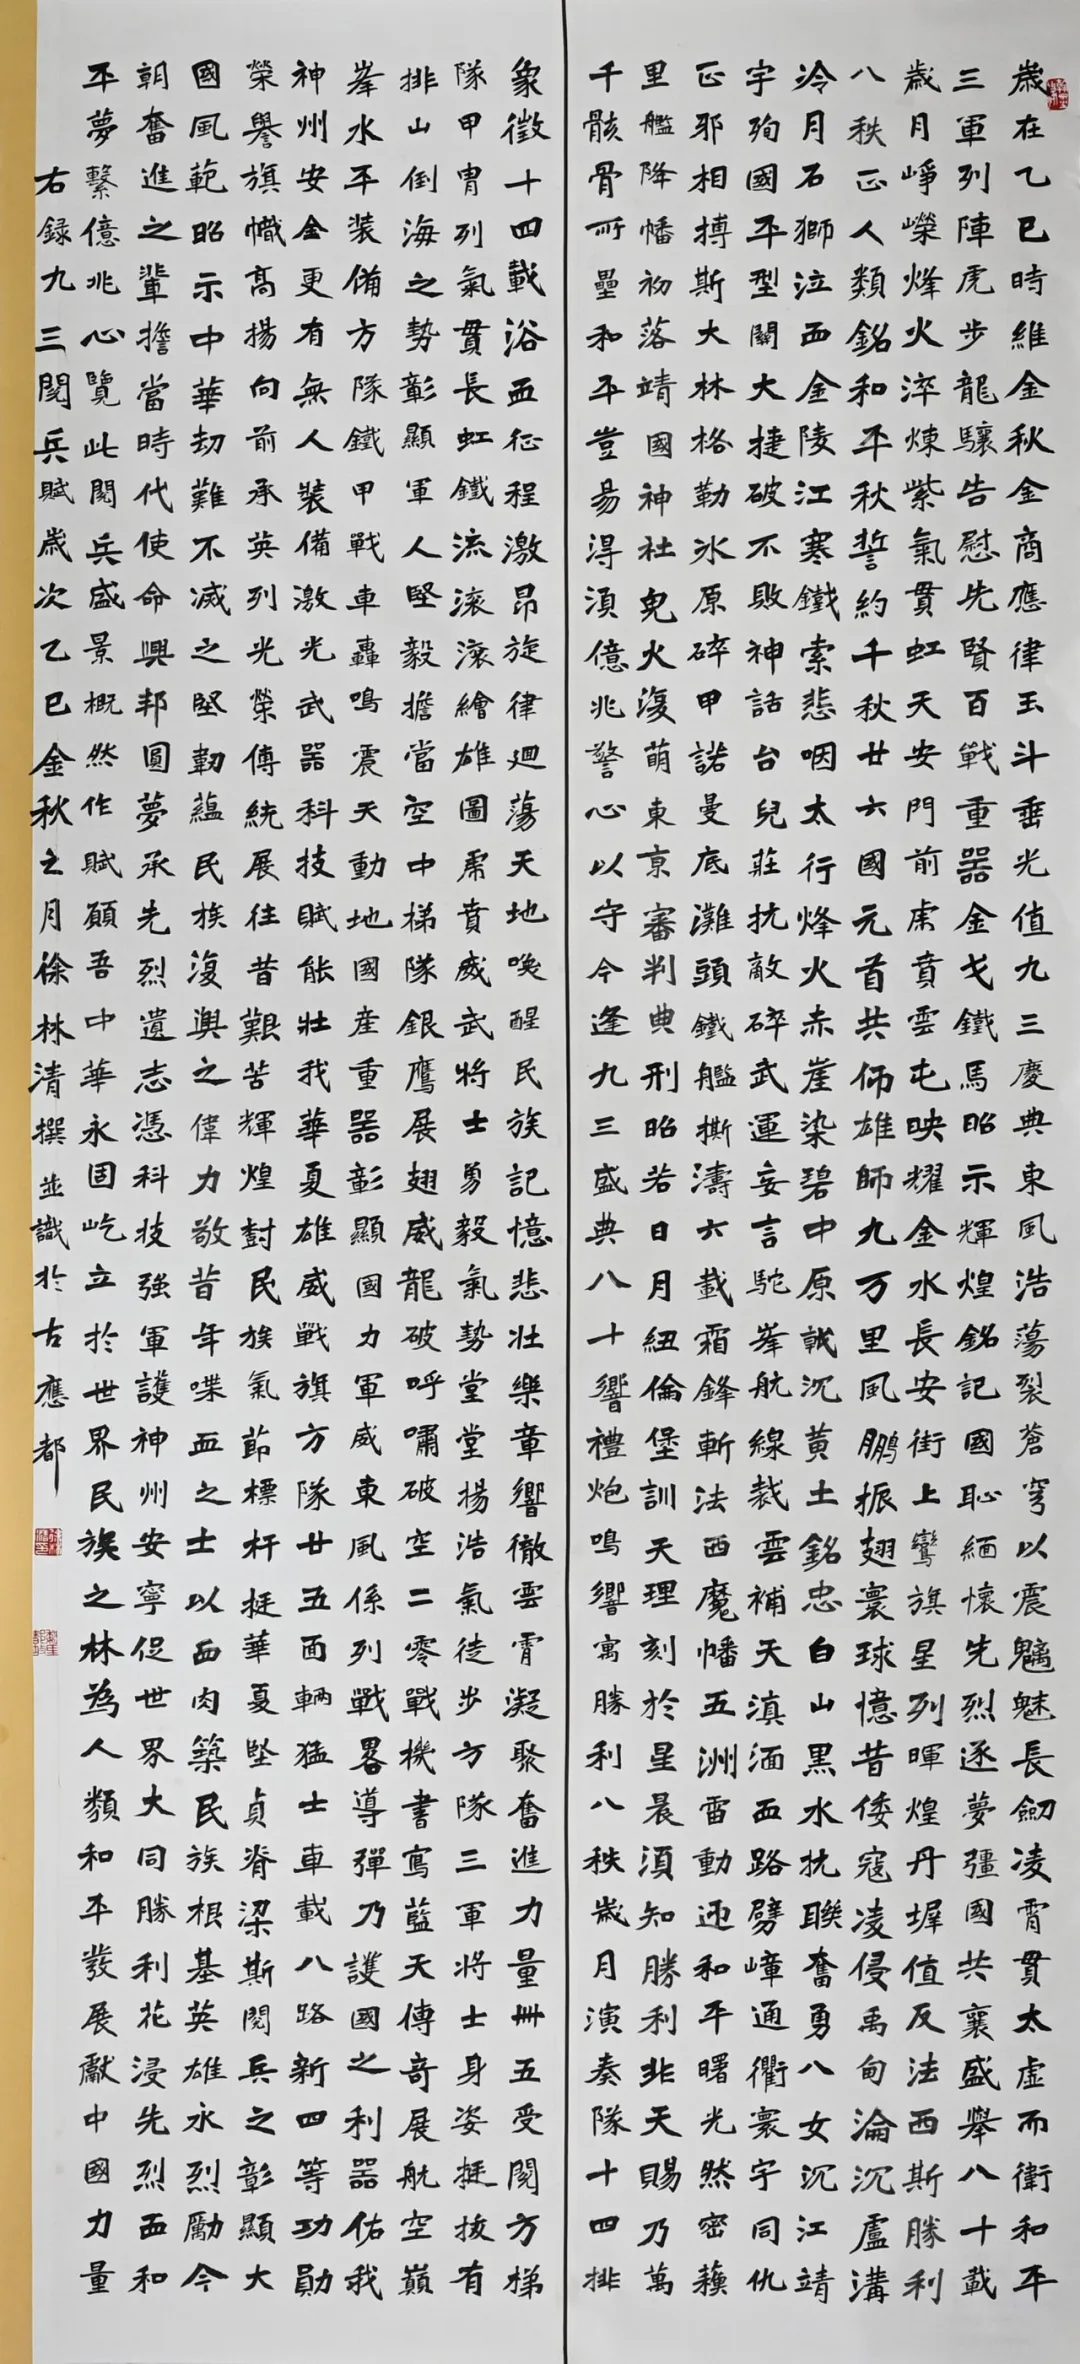 歲在乙巳時維金秋金商應律玉斗垂光值九三慶典東風浩蕩裂蒼穹以震魑魅長劍凌霄貫太虛而衛和平
三軍列陣虎步龍驤告慰先賢百戰重器金戈鐵馬昭示輝煌銘記國恥緬懷先烈逐夢彊國共襄盛舉八十載
歲月崢嶸烽火淬煉紫氣貫虹天安門前虎賁雲屯映耀金水長安街上鸞旗星列暉煌丹墀值反法西斯勝利
八秩正人類銘和平秋誓約千秋廿六國元首共雄師九万里風鵬振翅寰球憶昔倭寇凌侵禹甸淪沉盧溝
冷月石獅泣血金陵江寒鐵索悲咽太行烽火赤崖染碧中原戟沉黃土銘忠白山黑水抗聯奮勇八女沉江靖
宇殉國平型關大捷破不敗神話台兒莊抗敵碎武運妄言駝峯航線裁雲補天滇湎血路劈嶂通衢寰宇同仇
正邪相搏斯大林格勒冰原碎甲諾曼底灘頭鐵艦撕濤六載霜鋒斬法西魔幡五洲雷動迎和平曙光然密蘓
里艦降幡初落靖國神社鬼火復萌東京審判典刑昭若日月紐倫堡訓天理刻於星晨須知勝利非天賜乃萬
千骸骨所壘和平豈易得須億兆警心以守今逢九三盛典八十響禮炮鳴響寓勝利八秩歲月演奏隊十四排
象徵十四載浴血征程激昂旋律迴蕩天地喚醒民族記憶悲壯樂章響徹雲霄凝聚奮進力量卌五受閱方梯
隊甲冑列氣貫長虹鐵流滾滾繪雄圖虎賁威武將士勇毅氣勢堂堂揚浩氣徒步方隊三軍將士身姿挺拔有
排山倒海之勢彰顯軍人堅毅擔當空中梯隊銀鷹展翅威龍破呼嘯破空二零戰機書寫藍天傳奇展航空巔
峯水平裝備方隊鐵甲戰車轟鳴震天動地國產重器彰顯國力軍威東風係列戰畧導彈乃護國之利器佑我
神州安全更有無人裝備激光武器科技賦能壯我華夏雄威戰旗方隊廿五面輛猛士車載八路新四等功勛
榮譽旗幟高揚向前承英列光榮傳統展往昔艱苦輝煌對民族氣節標杆挺華夏堅貞脊梁斯閱兵之彰顯大
國風範昭示中華劫難不滅之堅韌蘊民族復興之偉力敬昔年喋血之士以血肉築民族根基英雄永烈勵今
朝奮進之輩擔當時代使命興邦圓夢承先烈遺志憑科技強軍護神州安寧促世界大同勝利花浸先烈血和
平夢繫億兆心覽此閱兵盛景概然作賦願吾中華永固屹立於世界民族之林為人類和平發展獻中國力量
右錄九三閱兵賦歲次乙巳金秋之月徐林清撰並識於古應都